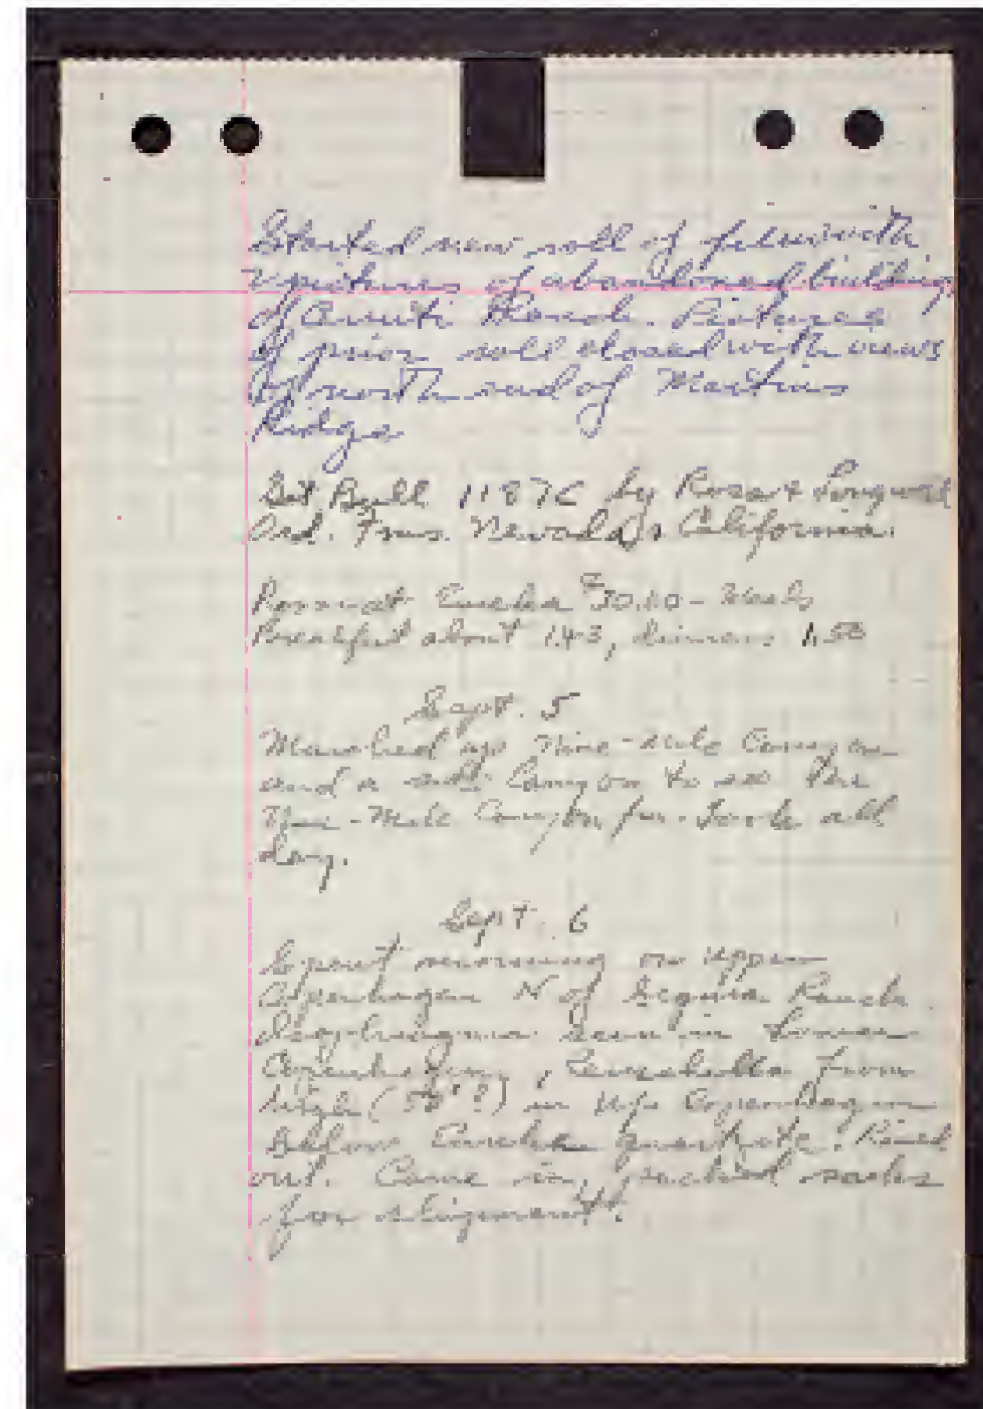 Started new roll of film with
pictures of abandoned building
of Ranch. Pictures
of prior roll closed with views
of north end of Martins
Ridge
Get Bull 1187C by Ross & Longwell
Ord. Fms. Nevada & California.
Room at Eureka $30.60 - Meals
Breakfast about 1.43, dinners 1.50
Sept. 5
Marched up Nine-Mile Canyon
and a side Canyon to see the
Nine-Mile Canyon fm - Took all
day.
Sept. 6
Spent morning on upper
Copenhagen N of Segura Ranch.
seen in lower
Copenhagen, from
high (50' ?) in up. Copenhagen
below Eureka quartzite. Rained
out. Came in, packed rocks
for shipment.